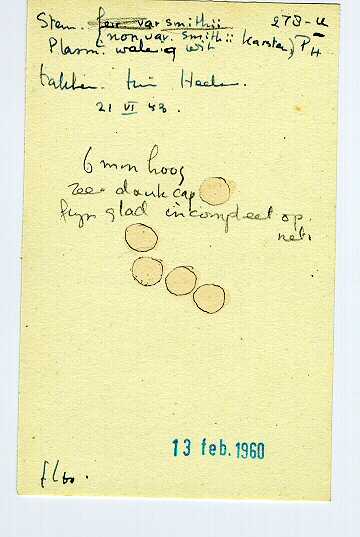 Stem. fer var smithii 273-U
(non var. smithii Karsten) PH
Plasm. waterig wit
takken. tuin Heeln.
21 VI 48.
6 mm hoog
zeer dank cap
fyn glad incompleet op.
net.
13 feb. 1960